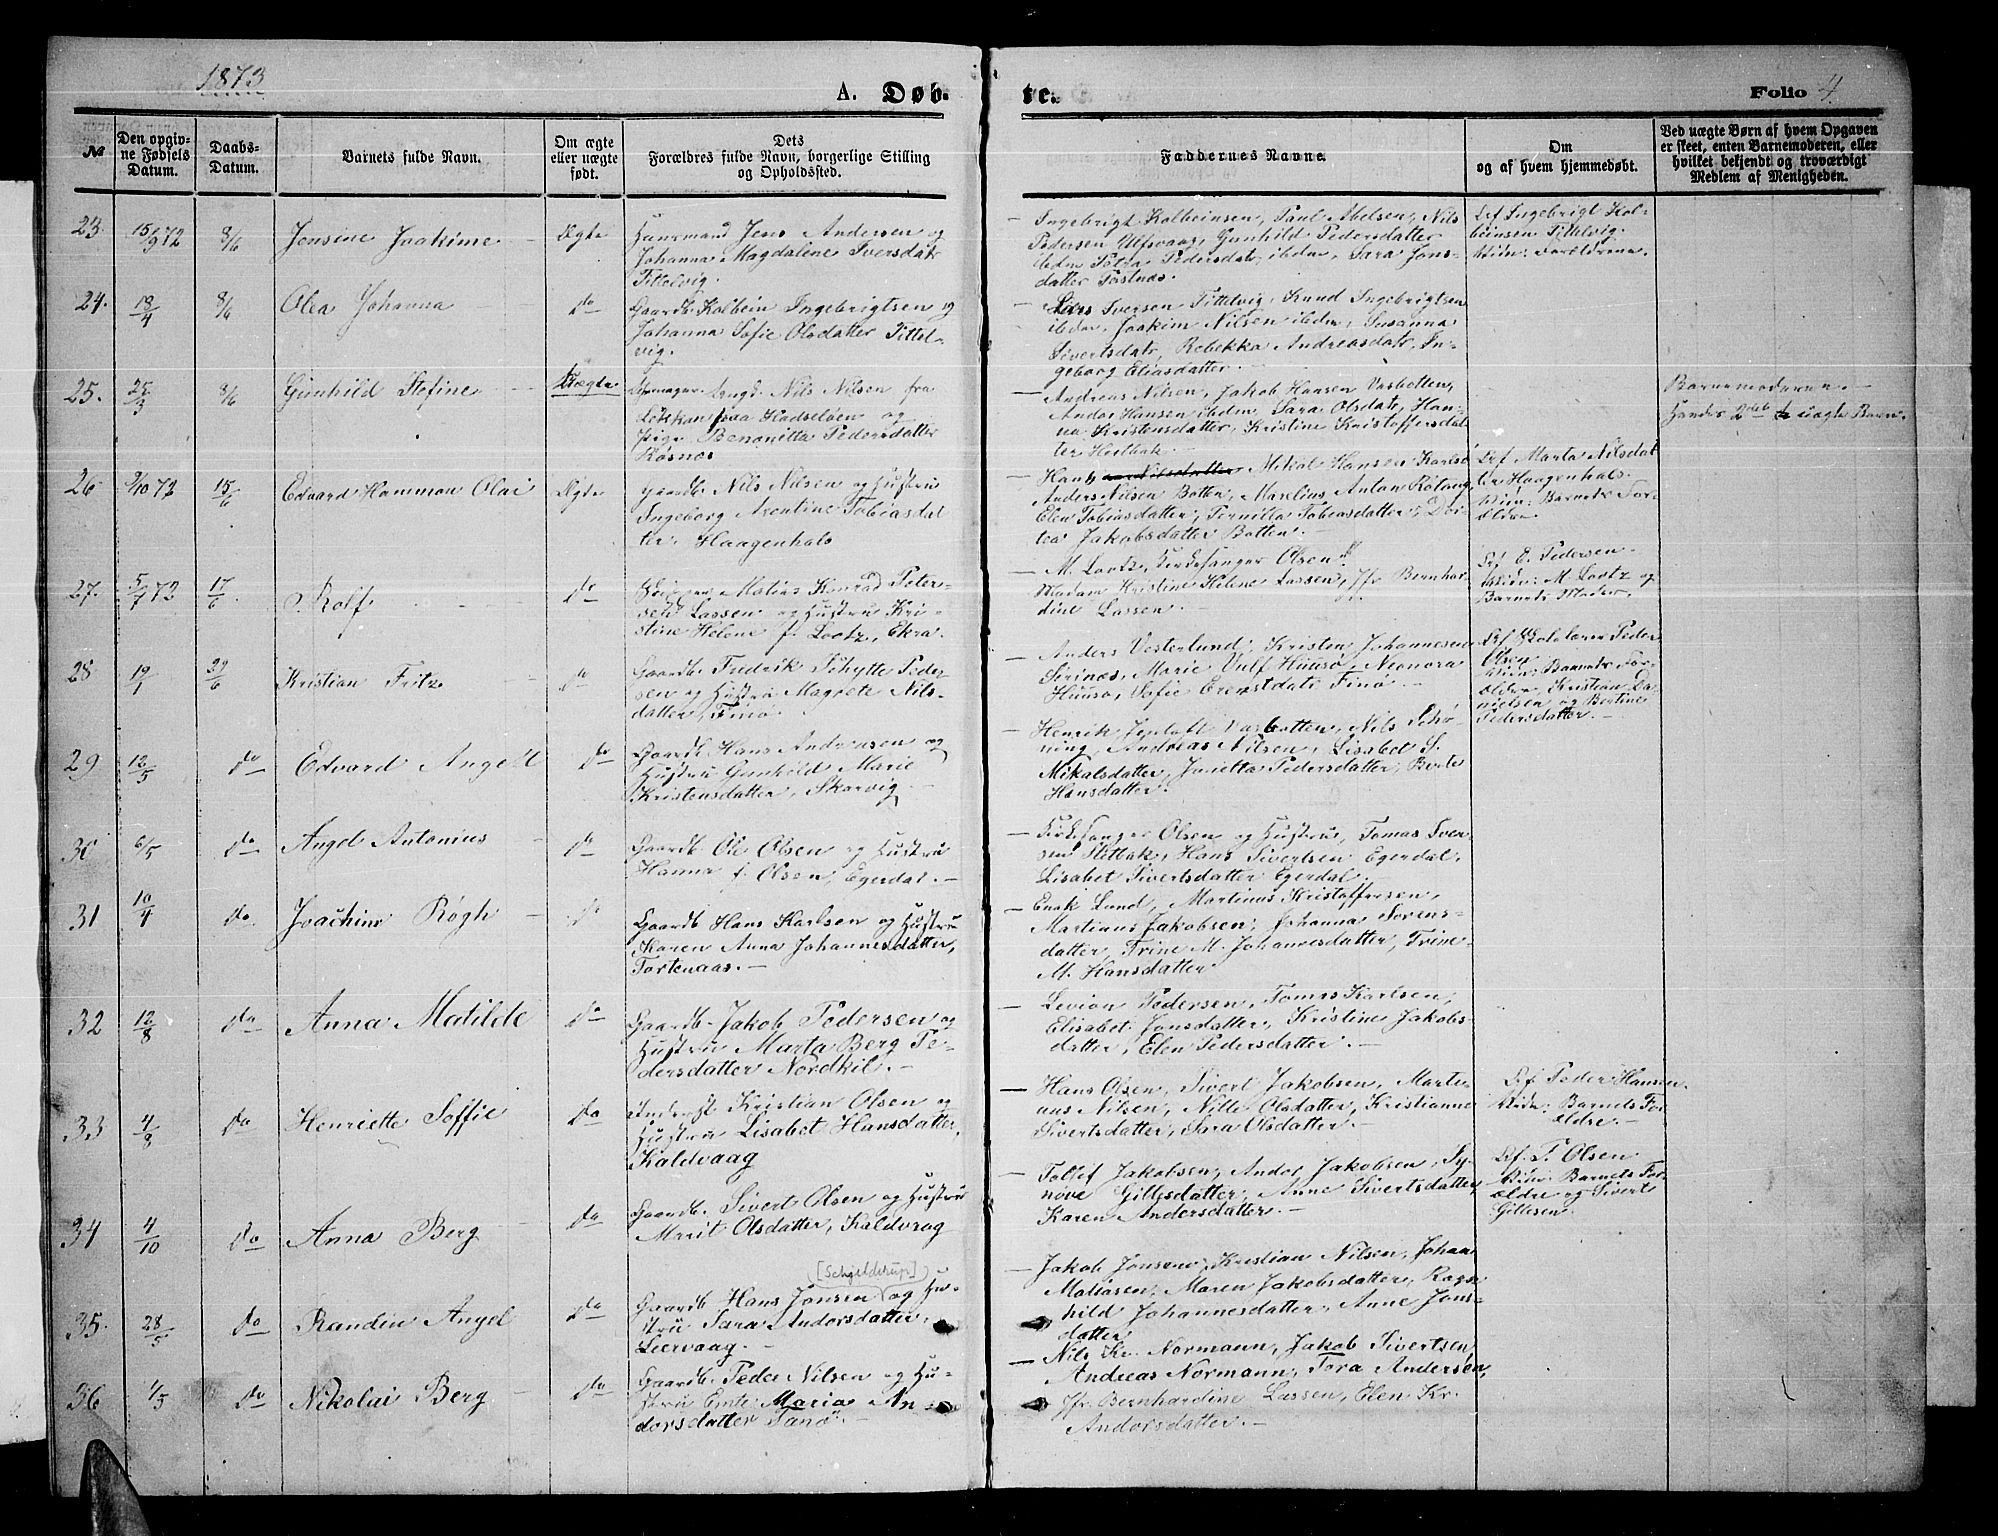 1873
A. Døb-
te.
Folio 4.
№
Den opgiv-
ne Fødsels
Datum.
Daabs-
Datum.
Barnets fulde Navn.
Om ægte
eller uægte
født.
Dets
Forældres fulde Navn, borgerlige Stilling
og Opholdssted.
Faddernes Navne.
Om
og af hvem hjemmedøbt.
Ved uægte Børn af hvem Opgaven
er skeet, enten Barnemoderen, eller
hvilket bekjendt og troværdigt
Medlem af Menigheden.
23. 15/9 72 8/6 Jensine Joakime Ægte
Huusmand Jens Andersen og
Johanna Magdalene Iversdatr
Tittelvig.
Ingebrigt Kolbeinsen, Paul Abelsen, Nils
Pedersen Ulfsvaag, Gunhild Pedersdatter
ibdm Petra Pedersdatr, ibdm, Sara Jons-
datter
Ingebrigt Kol-
beinsen Tittelvig.
Vidn: Forældrene.
24. 18/4 8/6 Olea Johanna do
Gaardb. Kolbein Ingebrigtsen og
Johanna Sofie Olsdatter Tittel-
vig.
Iversen Tittelvig, Knud Ingebrigtsen
ibdm, Joakim Nilsen ibdm, Susanna
Sivertsdatr, Rebekka Andreasdatr, In-
geborg Eliasdatter.
25. 25/3 8/6 Gunhild Stefine Uægte
Ungk. Nils Nilsen fra
paa Hadseløen og
Pige Benanitta Pedersdatter
Røsnes
Andreas Nilsen, Jakob Hansen Vasbotten,
Andor Hansen ibdm, Sara Olsdatr, Han-
na Kristensdatter, Kristine Kristoffersdat-
ter
Barnemoderen.
Hendes 2det uægte Barn.
26 9/10 72 15/6 Edvard Hammon Olai Ægte
Gaardb. Nils Nilsen og Hustru
Ingeborg Arentine Tobiasdat
ter. Haagenhals
Hans Mikal Hansen Karlsø
Anders Nilsen Botten, Marelius Anton Røtang,
Elen Tobiasdatter, Pernilla Tobiasdatter, Dor-
tea Jakobsdatter Botten.
Marta Nilsdat
ter Haagenhals.
Vidn: Barnets For-
ældre.
27. 5/7 72 17/6. Rolf do
Matias Konrad Peter-
sen Lassen og Hustru Kri-
stine Helene f. Lootz, Ekra.
M. Lootz, Kirkesanger Olsen
Madam Kristine Helene Lassen, Jfr. Bernhar
dine Lassen.
E. Pedersen
Vidn: M. Lootz og
Barnets Moder.
28 19/1 22/6 Kristian Fritz do
Gaardb. Fredrik Schytte Peder-
sen og Hustru Magrete Nils-
datter, Finø.
Anders Vesterlund, Kristen Johannesen
Serines, Marie Vulf Huusø, Neonora
Huusø, Sofie Erenstdatr Finø.
Skolelærer Peder
Olsen
Vidn: Barnets For-
ældre, Kristian Da-
nielsen og Bertine
Pedersdatter.
29 12/5 do Edvard Angell do
Gaardb. Hans Andreasen og
Hustru Gunhild Marie
Kristensdatter, Skarvig
Henrik Jeploft Vasbotten, Nils Schø-
ning, Andreas Nilsen, Lisabet S.
Mikalsdatter, Janetta Pedersdatter, Berte
Hansdatter.
30 6/5 do. Angel Antonius do
Gaardb. Ole Olsen og Hustru
Hanna f. Olsen, Egerdal.
Kirkesanger Olsen og Hustru, Tomas Iver-
sen Stilbak, Hans Sivertsen Egerdal,
Lisabet Sivertsdatter Egerdal.
31 10/4 do. Joachim Røgh do
Gaardb. Hans Karlsen og Hustru
Karen Anna Johannesdatter,
Tortenaas.
Enok Lund, Martinus Kristoffersen,
Martinus Jakobsen, Johanna Sørens-
datter, Trine M. Johannesdatter, Trine
M. Hansdatter
32 12/8 do Anna Matilde do
Gaardb. Jakob Pedersen og
Hustru Marta Berg Pe-
dersdatter Nordkil.
Levion Pedersen, Tomas Karlsen,
Elisabet Jonsdatter, Kristine Jakobs-
datter, Elen Pedersdatter.
33 4/8 do Henriette Soffie do
Inderst Kristian Olsen og
Hustru Lisabet Hansdatter,
Kaldvaag
Hans Olsen, Sivert Jakobsen, Marti-
nus Nilsen, Nille Olsdatter, Kristianne
Sivertsdatter, Sara Olsdatter.
Peder Hansen.
Vidn: Barnets For-
ældre.
34 4/10 do Anna Berg do
Gaardb. Sivert Olsen og Hustru
Marit Olsdatter, Kaldvaag
Tollef Jakobsen, Andor Jakobsen, Sy-
nøve Gillesdatter, Anne Sivertsdatter,
Karen Andersdatter.
P. Olsen
Vidn: Barnets For-
ældre og Siverts
Gillesen.
35. 28/5 do Randin Angel do
[Schjelderup]
Gaardb. Hans Jonsen og Hu-
stru Sara Andorsdatter,
Leervaag.
Jakob Jonsen, Kristian Nilsen, Johan
Matiasen, Maren Jakobsdatter, Ragn-
hild Johannesdatter, Anne Jons-
datter
36 1/5 do Nikolai Berg do
Gaardb. Peder Nilsen og Hu-
stru Emte Maria An-
dorsdatter Tanø.
Nils Kr. Normann, Jakob Sivertsen
Andreas Normann, Tora Andersen,
Jfr. Bernhardine Lassen, Elen Kr.
Andorsdatter.